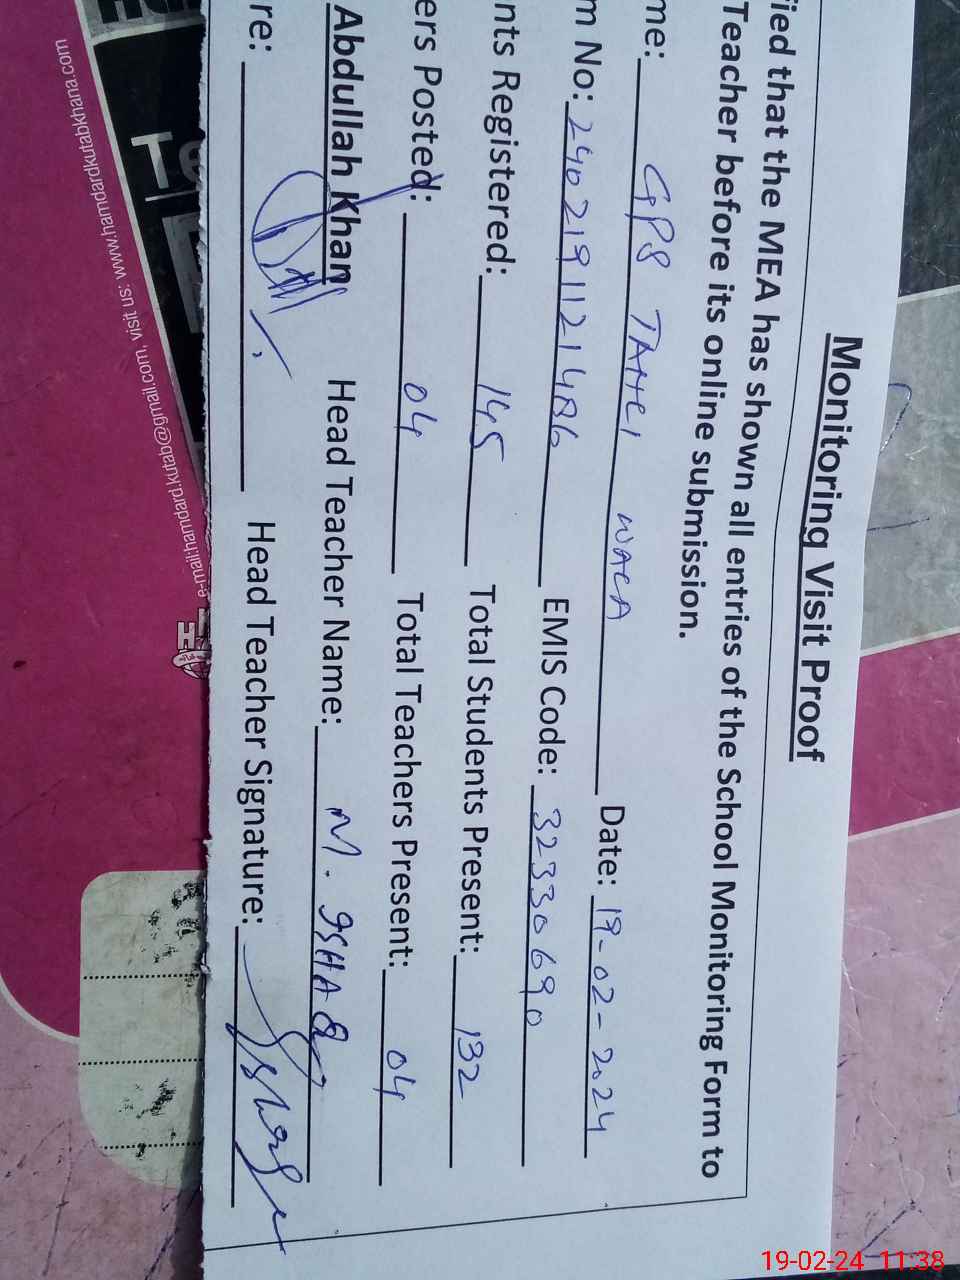 Monitoring Visit Proof
ied that the MEA has shown all entries of the School Monitoring Form to
Teacher before its online submission.
me: GPS TAHLI WALA Date: 19-02-2024
m No: 2402191121486 EMIS Code: 32330690
nts Registered: 145 Total Students Present: 132
ers Posted: 04 Total Teachers Present: 04
Abdullah Khan Head Teacher Name: M. ISHAQ
re: Head Teacher Signature:
e-mail:hamdard.kutab@gmail.com, visit us: www.hamdardkutabkhana.com
19-02-24 11:38